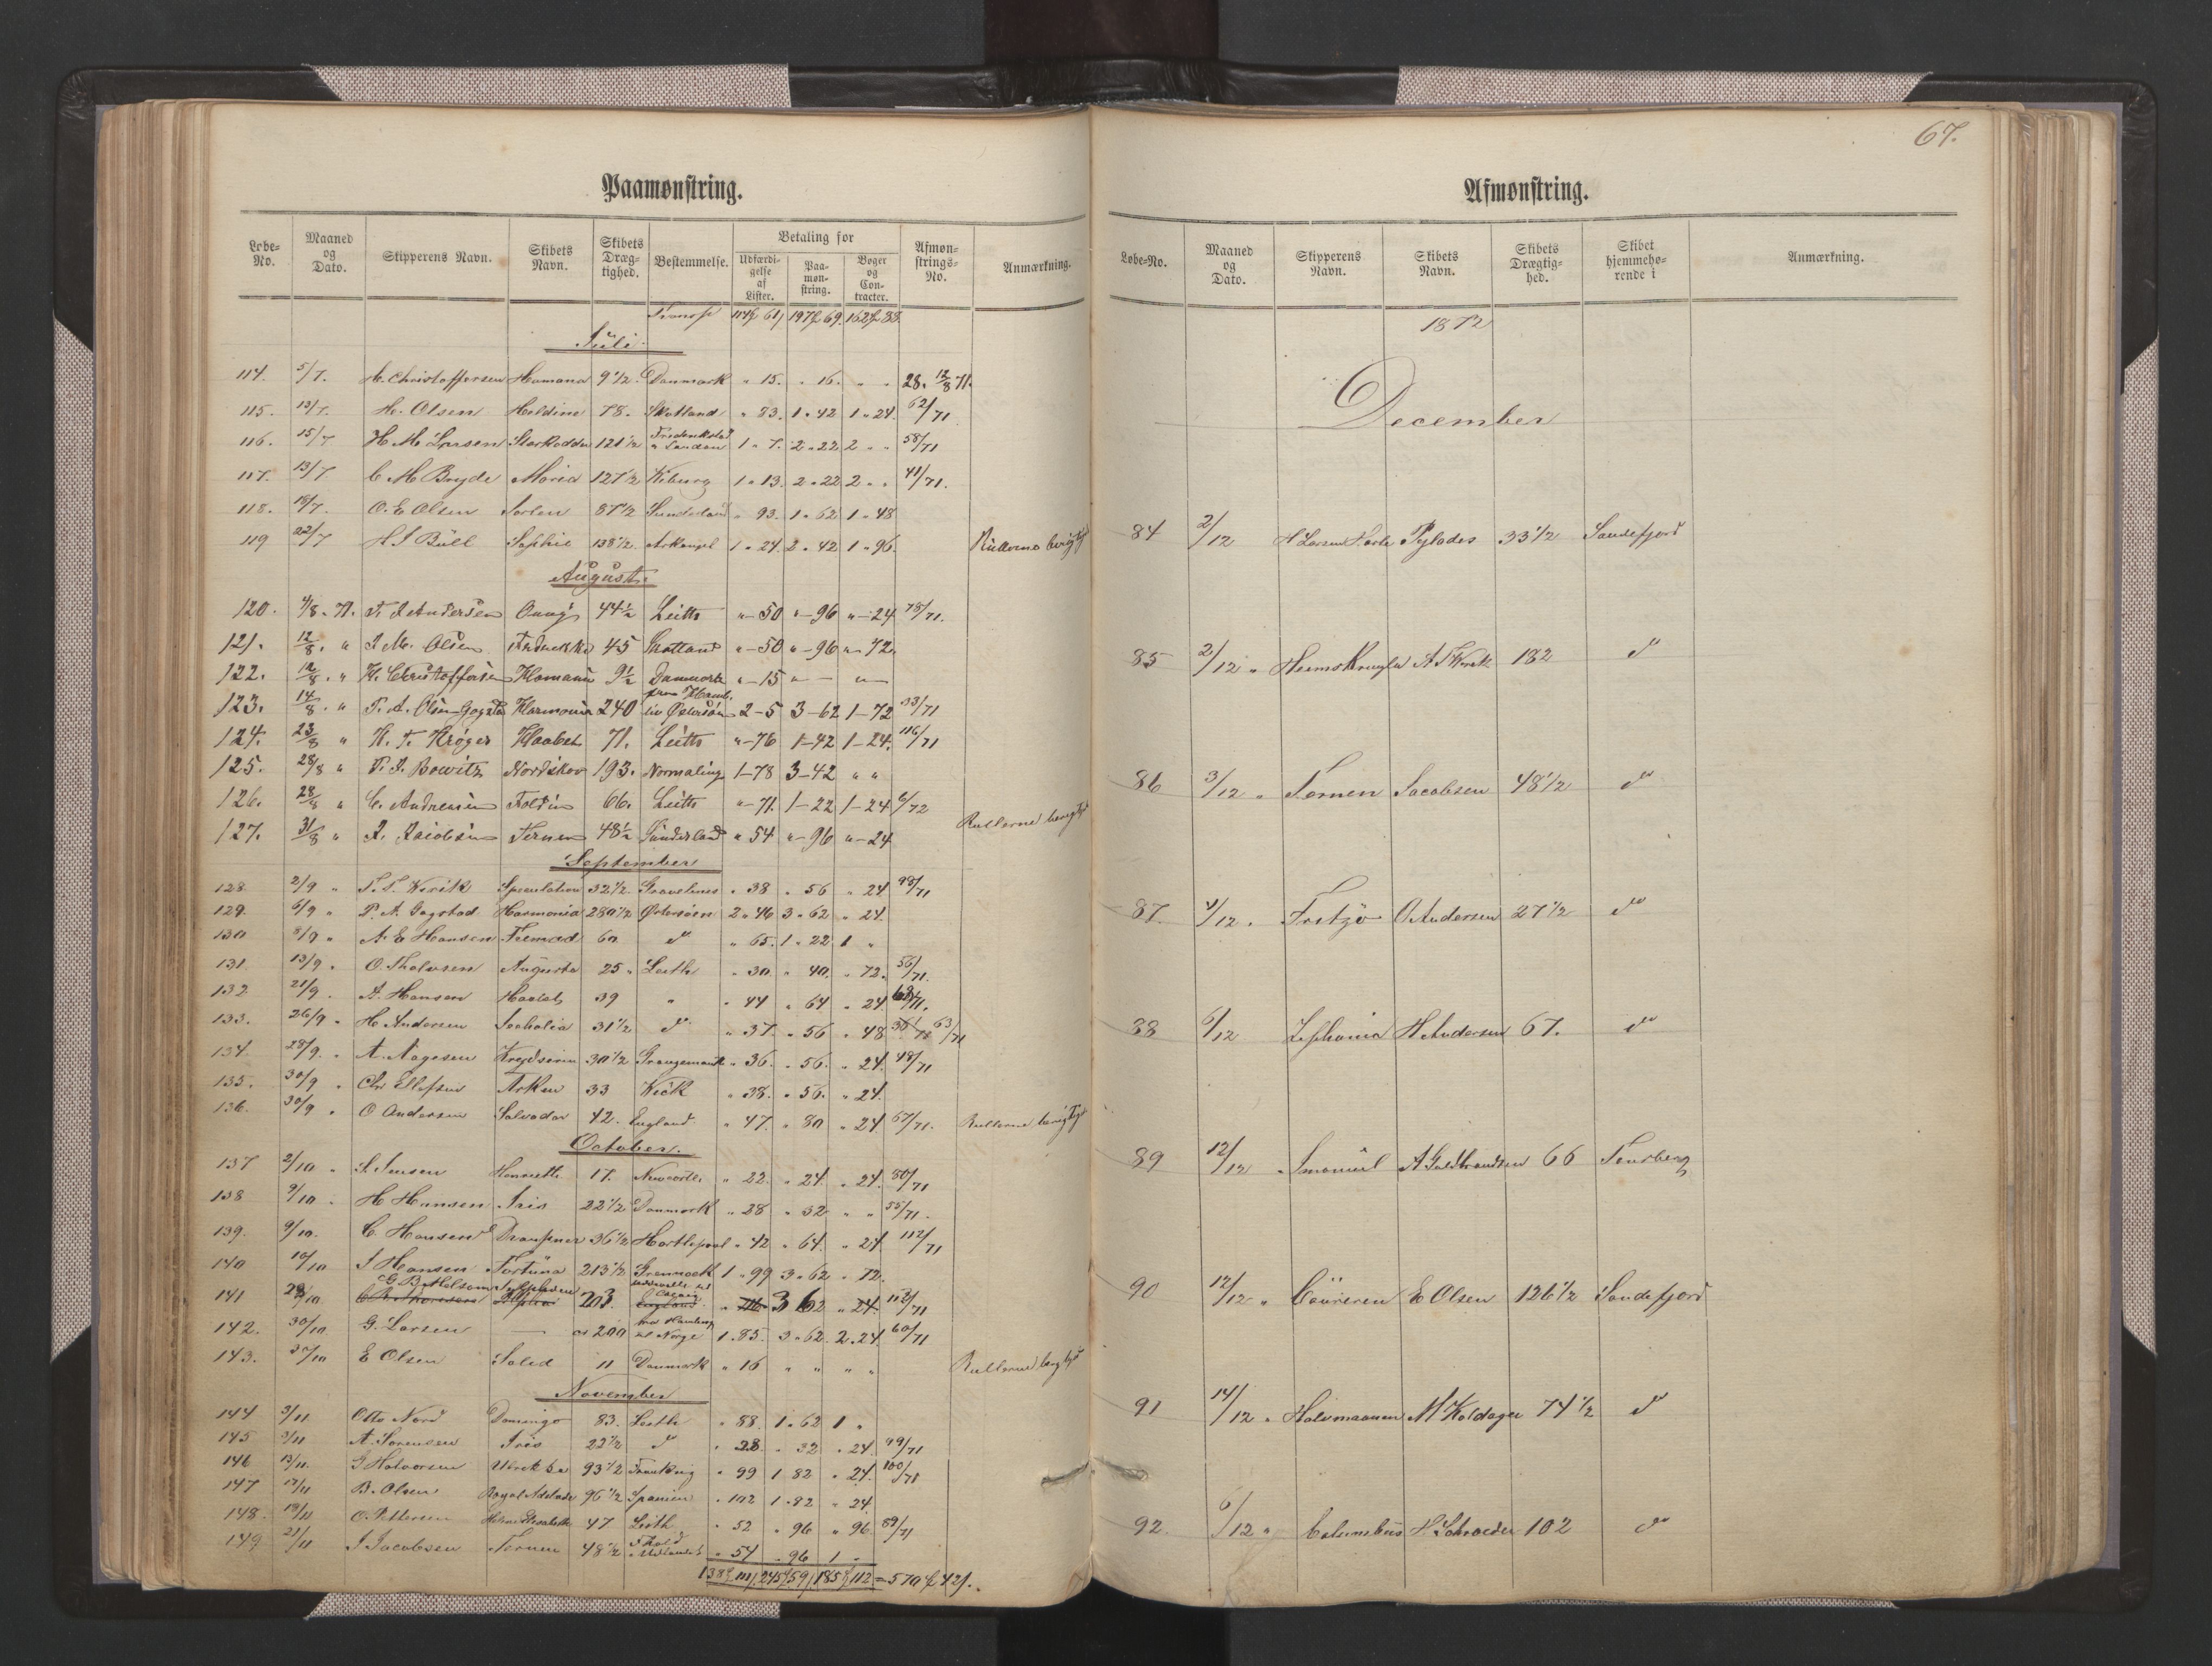 Paamønstring.
Løbe-No. Maaned og Dato. Skipperens Navn. Skibets Navn. Skibets Drægtighed. Bestemmelse. Betaling for Udfærdigelse af Lister. Paamønstring. Bøger og Contracter. Afmønstrings-No. Anmærkning.
Juli
114. 5/7. H. Christoffersen Homana 9 1/2. Danmark " 15. " 16. " " 28. 12/8 71.
115. 13/7. H. Olsen Heldine 78. Skotland " 83. 1 " 42 1 " 24. 62/71
116. 15/7 H M Larsen Starkodder 121 1/2 Frederikstad London 1 " 7. 2 " 22 2 " " 58/71
117. 13/7 C M Bryde Maria 127 1/2 Wiburg 1 " 13. 2 " 22 2 " " 41/71.
118. 18/7. O. E Olsen 87 1/2 Sunderland " 93. 1 " 62 1 " 48
119 22/7 H J Bull Sophie 138 1/2. Arkangel 1 " 24. 2 " 42 1 " 96. Rullerne berigtigt
August
120. 4/8 - 71. F. J. Andersen 44 1/2 Leith " - 50 " - 96 " - 24 78/71.
121. 12/8. " J. M. Olsen 45 Skotland " - 50 " - 96 " - 72.
122. 12/8. " H. Christoffersen Homana 9 1/2 Danmark " - 15 " - " -
123. 14/8. " P. A. Olsen Gogstad Harmonia 240 fra Hamb. til Østersøen 2 - 5 3 - 62 1 - 72 33/71
124. 23/8 " H. F. Krøger Haabet 71. Leith " - 76 1 - 42 1 - 24. 116/71
125. 28/8 " F. J. Bowitz Nordskov 193. Normaling 1 - 78 3 - 42 " "
126. 28/8 " C. Andresen 66. Leith " - 71. 1 - 22 1 - 24 6/72
127. 31/8 " J. Jacobsen Ternen 48 1/2 Sunderland " 54 " - 96 " - 24 Rullerne berigtigt
September
128 2/9 " Speculation 32 1/2. Gravelines " 38 " 56 " 24 98/71
129. 6/9 " P. A. Gogstad Harmonia 280 1/2 Østersøen 2 " 46 3 " 62 " 24.
130 8/9 " A E Hansen Fremad 60 do " 65. 1 " 22 1 "
131. 13/9. O. Tholvsen Augusta 25 " Leith " 30. " 40. " 72. 56/71.
132 21/9. A. Hansen Haabet 39 " " 44 " 64 " 24.
133. 26/9 " H. Andersen 31 1/2 do " 37. " 56 " 48 63/71
134. 28/9. " A. Aagesen Krydseren 30 1/2 Grangemouth " 36. " 56. " 24. 48/71
135. 30/9 " Chr Ellefsen Orken 33 Wick " 38. " 56. " 24.
136. 30/9 " O Andersen Salvador 42. England " 47. " 80 " 24 57/71. Rullerne berigtigt
October.
137 2/10 " S. Jensen Henriette 17. Newcastle " 22. " 24. " 24. 80/71
138 9/10 " H Hansen Iris 22 1/2 Danmark " 28 " 32 " " 55/71.
139. 9/10. C. Hansen Draupner 36 1/2 Hartlepool " 42 " 64. " 24. 112/71
140 10/10 J Hansen Fortuna 213 1/2 Grennock 1 " 99 3 " 62 " 72.
141 203. England 3 62 " 24. 112/71
142. 30/10 G. Larsen — ca 200 fra Hamburg til Norge 1. 85. 3 " 62. 2 " 24. 60/71
143. 30/10 E Olsen Solid 11 Danmark " 16 " " " " Rullerne berigtigt
November
144 3/11 Otto Nord Domingo 83. Leith " 88. 1 " 62 1 "
145 A. Sørensen Iris 22 1/2 do " 28 " 32 " 24. 99/71
146 13/11. G Halvorsen Ulrikka 93 1/2 Frankrig " 99 1 82 " 24. 100/71
147 17/11 B. Olsen Royal Adelaide 96 1/2 Spanien " 102 1 " 82 " 24.
148. 19/11 O. Pettersen 47 Leith " 52 " 96 " 96. 89/71
149 21/11 J Jacobsen Ternen 48 1/2 " 54 " 96 1 "
67.
Afmønstring.
Løbe-No. Maaned og Dato. Skipperens Navn. Skibets Navn. Skibets Drægtighed. Skibet hjemmehørende i Anmærkning.
1872
December
84 2/12 Pylades 33 1/2 Sandefjord
85 2/12 " Heimskringla 182 do
86 3/12 " Ternen Jacobsen 48 1/2 do
87. 4/12. Fretzø O Andersen 27 1/2 do
88 6/12 Zephania H Andersen 67. do
89 12/12 " Imanuel A Guldbrandsen 66 Tønsberg
90 12/12 " Coureren E Olsen 126 1/2 Sandefjord
91 14/12 " Halvmaanen M Koldager 74 1/2 do
92. 6/12 " Columbus H Schrøeder 102 do